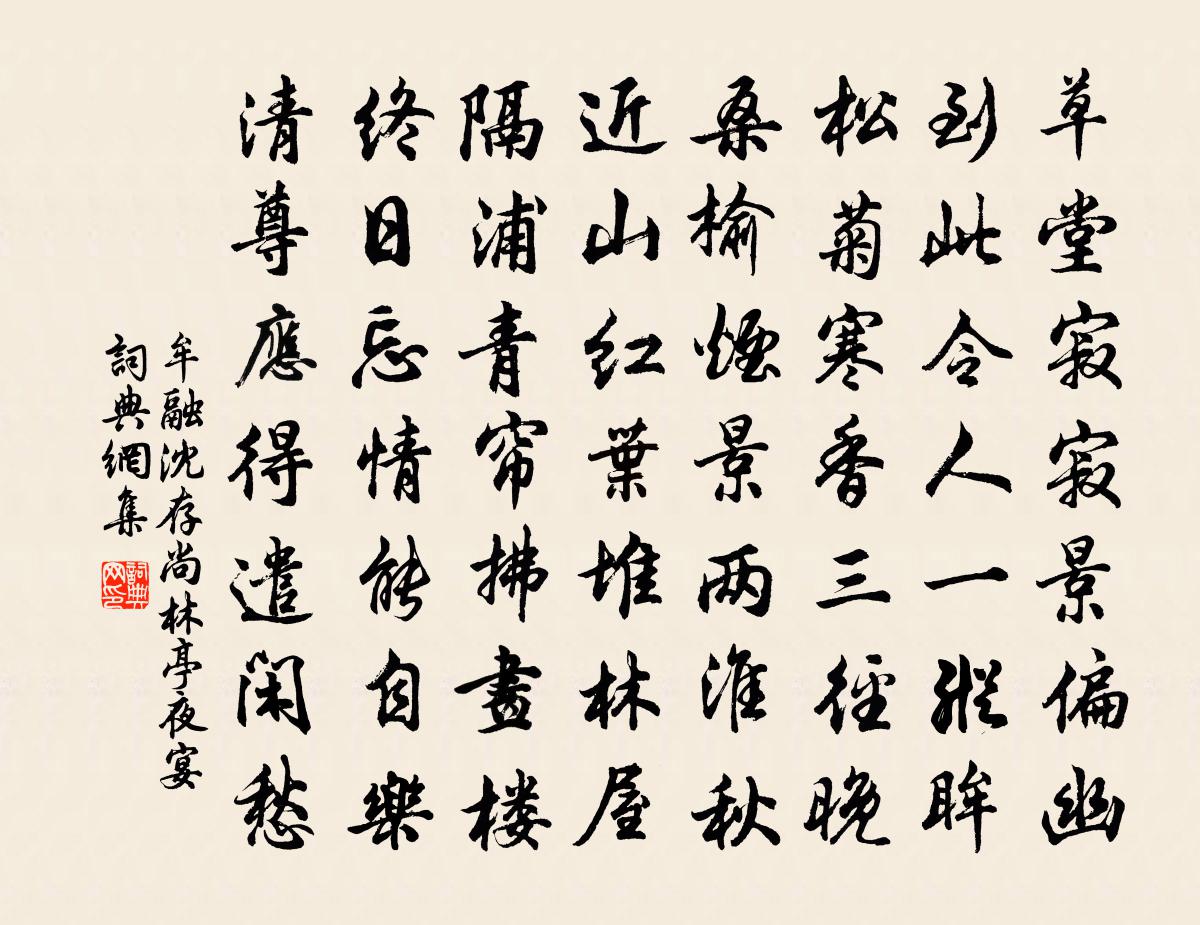 草堂寂寂景偏幽
到此令人一縱眸
松菊寒香三徑晚
桑榆煙景兩淮秋
近山红葉堆林屋
隔浦青帘拂畫楼
終日忘情能自樂
清尊應得遣閑愁
牟融沈存尚林亭夜宴
詞典網集
詞典网印